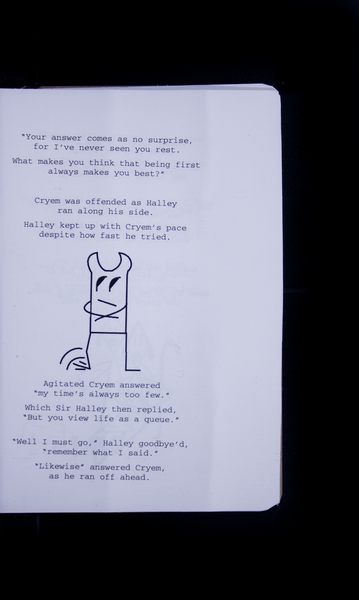 "Your answer comes as no surprise,
for I've never seen you rest.
What makes you think that being first
always makes you best?"
Cryem was offended as Halley
ran along his side.
Halley kept up with Cryem's pace
despite how fast he tried.
Agitated Cryem answered
"my time's always too few."
Which Sir Halley then replied,
"But you view life as a queue."
"Well I must go," Halley goodbye'd,
"remember what I said."
"Likewise" answered Cryem,
as he ran off ahead.